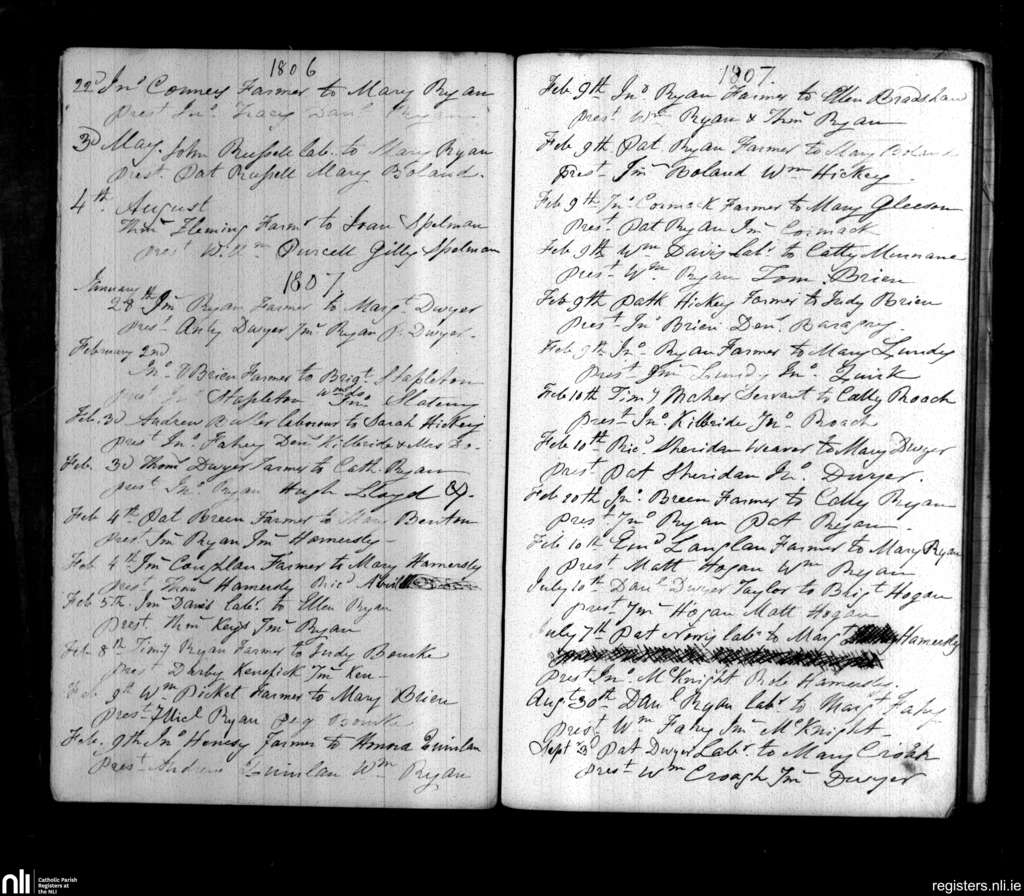 1806
22d Jno Conners Farmer to Mary Ryan
prest Jno Tracy Danl Ryan
3d May. John Russell lab. to Mary Ryan
prest Pat Russell Mary Boland.
4th August
Thos Fleming Farmr to Joan Spelman
prest Willm Purcell Gilly Spelman
1807
January
28th Jms Ryan Farmer to Margt Dwyer
prest Anty Dwyer Jms Ryan P. Dwyer.
February 2nd
Jno OBrien Farmer to Brigt Stapleton
Stapleton Wm
Feb. 3d Andrew Butler labourer to Sarah Hickey
prest Jno Fahey Denl Kilbride & Mrs Do.
Feb. 3d Thoms Dwyer Farmer to Cath. Ryan
prest Jno Ryan Hugh Lloyd &.
Feb 4th Pat Breen Farmer to Mary Benton
pres Jms Ryan Jms Hamersly
Feb 4th Jms Coughlan Farmer to Mary Hamersly
prest Thos Hamersly Ricd
Feb 5th. Jms Davis Labr. to Ellen Ryan
Prest. Thms Keefe Jms Ryan
Feb 8th Timy Ryan Farmer to Judy Bourke
prest Darby Kenefick Jms
Feb. 9th Wm Picket Farmer to Mary Brien
Prest Micl Ryan Peg Bourke
Feb. 9th Jno Henesy Farmer to Honora Quinlan
Prest Andrew Quinlan Wm Ryan
1807.
Feb 9th Jno Ryan Farmer to Ellen Bradshaw
Prest Wm Ryan & Thms Ryan
Feb 9th Pat. Ryan Farmer to Mary Boland
prest Jms Boland Wm Hickey
Feb 9th Jno Cormack Farmer to Mary Gleeson
Prest Pat Ryan Jms Cormack
Feb 9th Wm Davis Labr. to Catty Murnane
Prest Wm Ryan Tom Brien
Feb 9th Patk Hickey Farmer to Judy Brien
Prest Jno Brien Denl.
Feb 9th Jno. Ryan Farmer to Mary Lundy
Prest Jms Lundy Jno. Quirk
Feb 10th Timy Maher Servant to Catty Roach
Prest Jno Kilbride Jno. Roach
Feb 10th Ricd Sheridan Weaver to Mary Dwyer
Prest Pat Sheridan Jno. Dwyer.
Feb 20th Jno Breen Farmer to Catty Ryan
Prest Jno Ryan Pat Ryan
Feb 10th Edmd Langlan Farmer to Mary Ryan
Prest Matt Hogan Wm Ryan
July 10th Danl Dwyer Taylor to Brigt Hogan
prest Jms Hogan Matt Hogan
July 7th Pat labr to Marg Hamersly
Prest Jno. McKnight Rob Hamersly
Aug 30th Danl Ryan labr to Margt Fahy
Prest Wm Fahy Jms McKnight
Sept 3d Pat Dwyer Labr. to Mary Croagh
Prest Wm Croagh Jms Dwyer
nli
Catholic Parish
Registers at
the NLI
registers.nli.ie